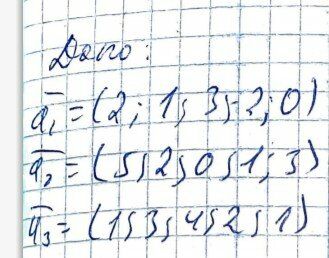 Дано:
a̅₁ = (2; 1; 3; -2; 0)
a̅₂ = (5; 2; 0; 1; 3)
a̅₃ = (1; 3; 4; 2; 1)